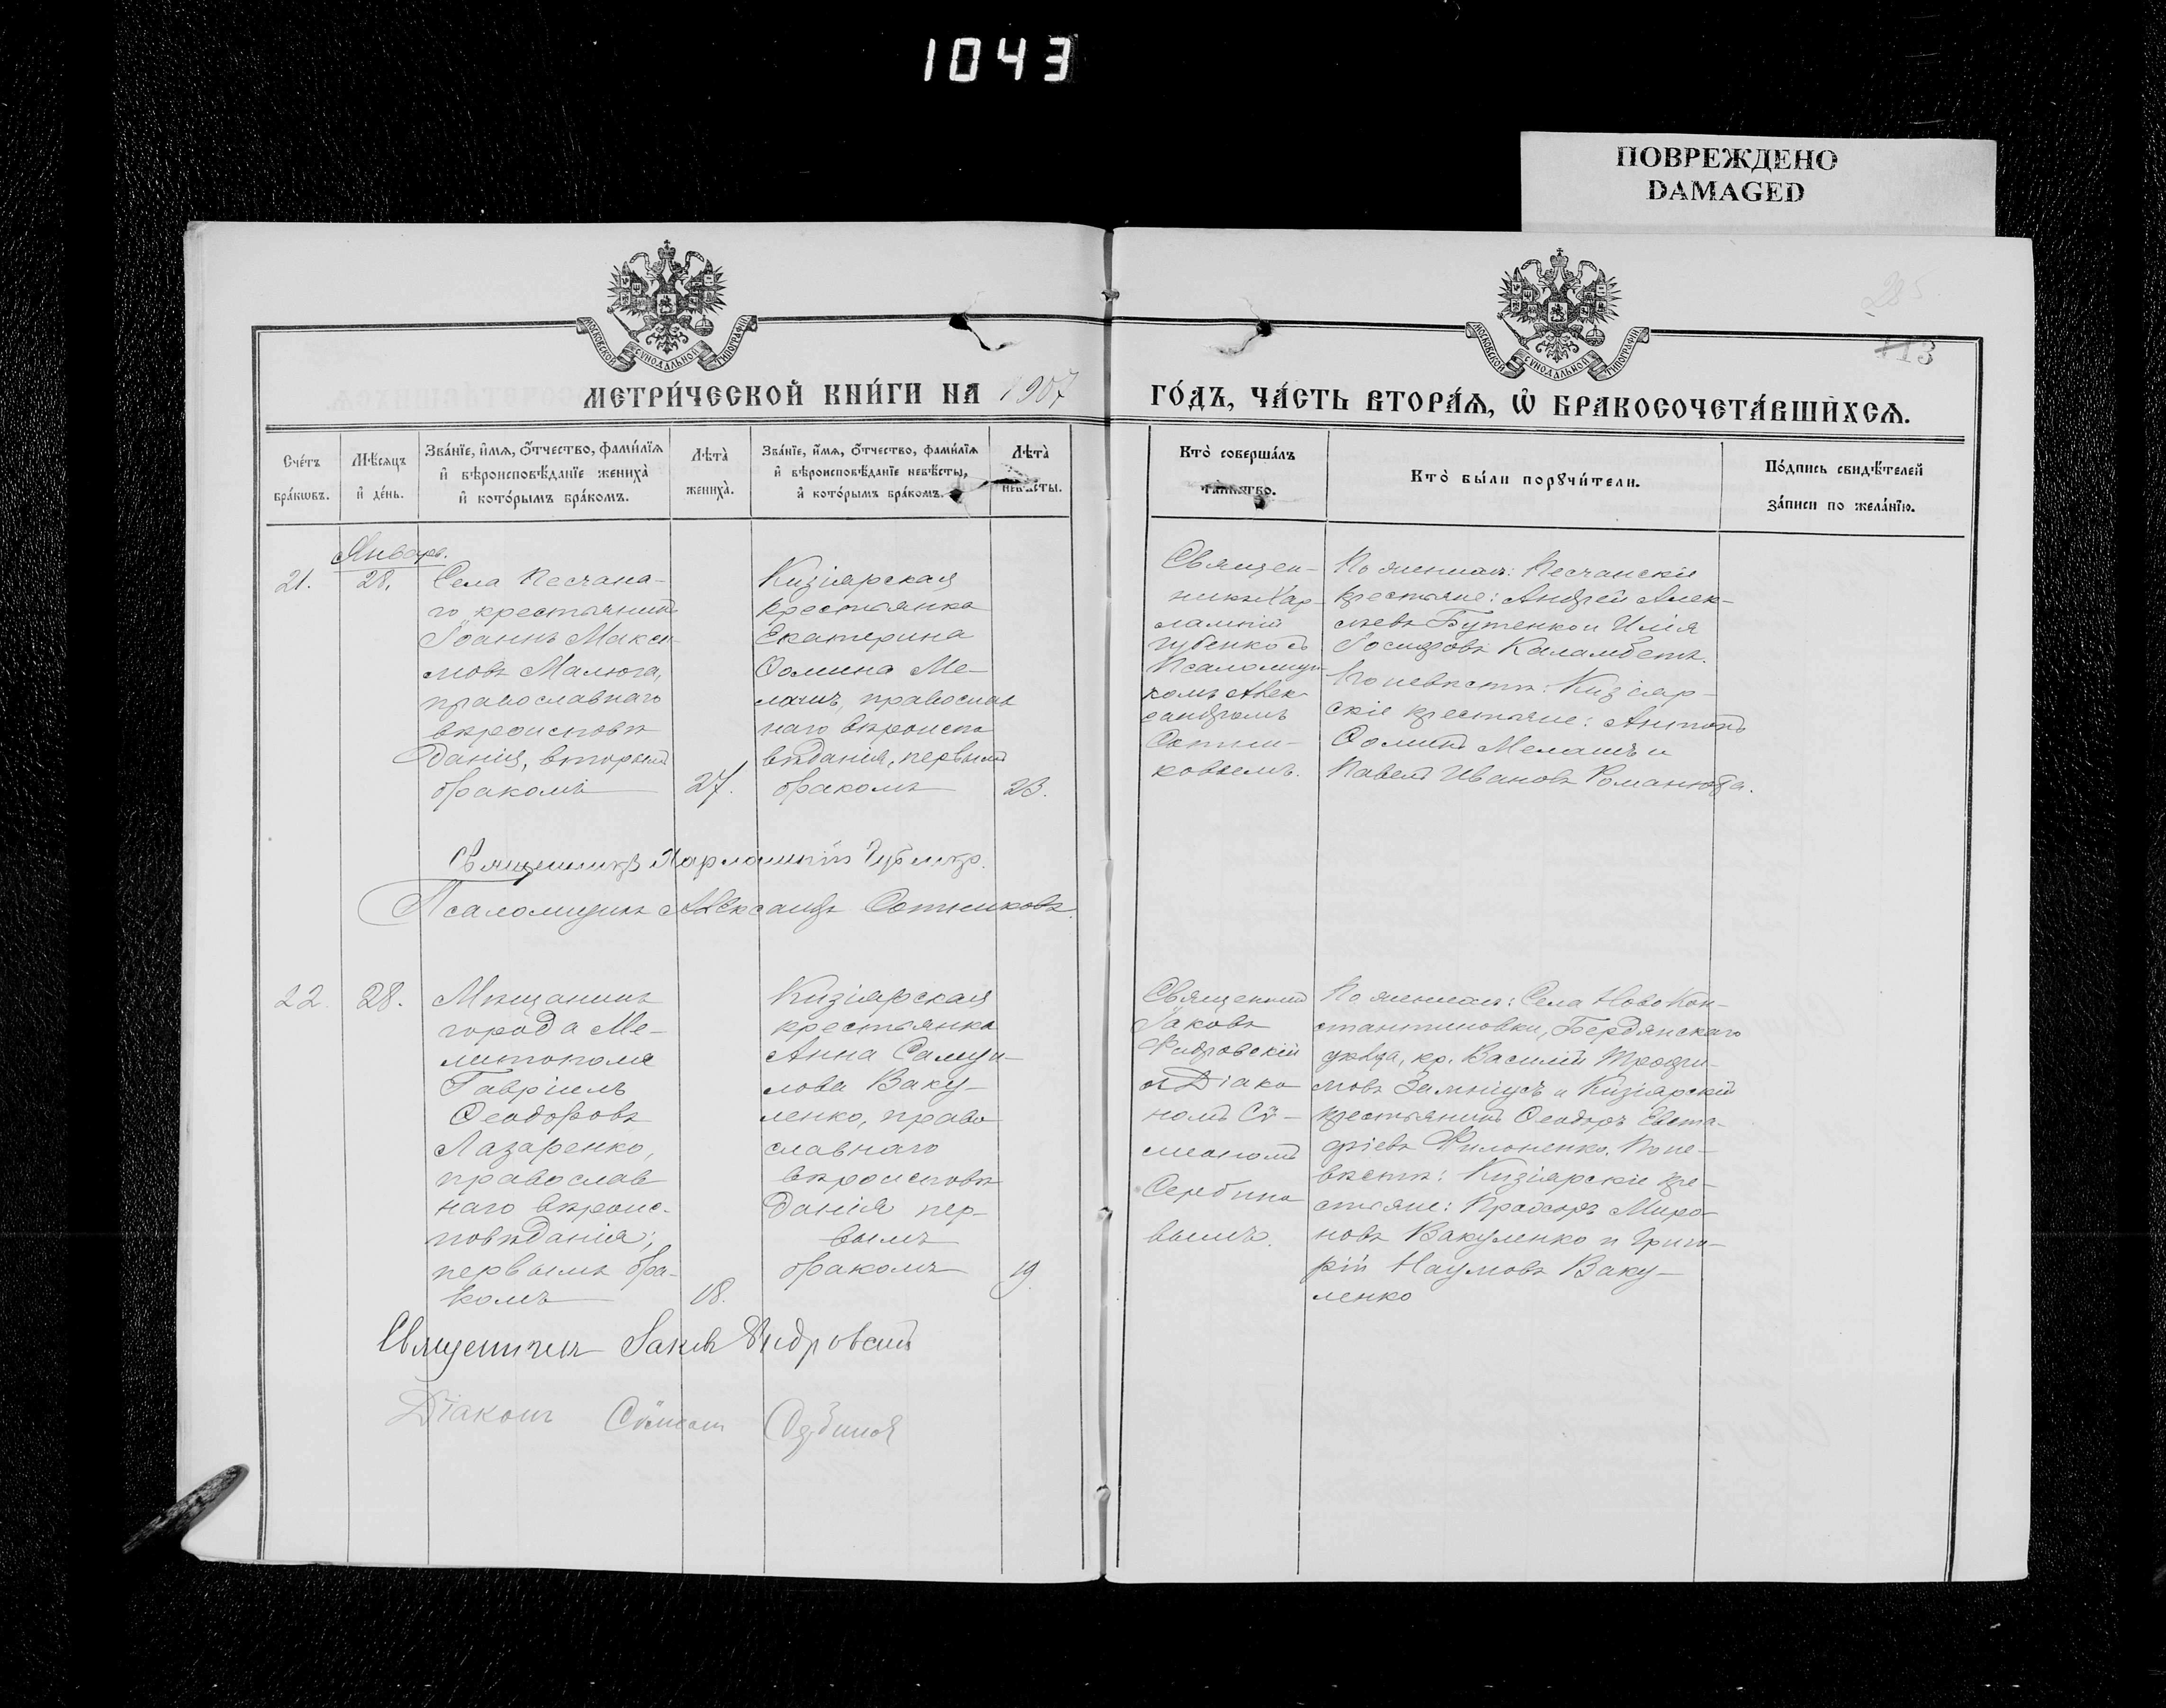 1043
ПОВРЕЖДЕНО
DAMAGED
МОСКОВСКОЙ СѴНОДАЛЬНОЙ ТИПОГРАФІИ
МОСКОВСКОЙ СѴНОДАЛЬНОЙ ТИПОГРАФІИ
13
МЕТРИ́ЧЕСКОЙ КНИ́ГИ НА 1907
ГО́ДЪ, ЧА́СТЬ ВТОРА́Ѧ, Ѡ҆ БРАКОСОЧЕТА́ВШИХСѦ.
Сче́тъ
бра́кѡвъ.
Мѣ́сѧцъ
и҆ де́нь.
Зва́нїе, и҆́мѧ, ѻ҆́тчество, фами́лїѧ
и҆ вѣроисповѣ́данїе жениха̀
и҆ кото́рымъ бра́комъ.
Лѣта̀
жениха̀.
Зва́нїе, и҆́мѧ, ѻ҆́тчество, фами́лїѧ
и҆ вѣроисповѣ́данїе невѣ́сты,
и҆ кото́рымъ бра́комъ.
Лѣта̀
невѣ́сты.
Кто̀ соверша́лъ
та́инство.
Кто̀ бы́ли порꙋчи́тели.
По́дпись свидѣ́телей
за́писи по жела́нїю.
Январь.
21.
28.
Села Песчана-
го крестьянинъ
Іоаннъ Макси-
мовъ Малюга,
православнаго
вѣроисповѣ
данія, вторымъ
бракомъ
27.
Кизіярская
крестьянка
Екатерина
Ѳомина Ме-
лашъ, православ
наго вѣроиспо
вѣданія, первымъ
бракомъ
23.
Священ-
никъ Хар-
лампій
Губенко съ
Псаломщи-
комъ Алек-
сандромъ
Сотни-
ковымъ.
По женихѣ: Песчанскіе
крестьяне: Андрей Алек-
сѣевъ Бутенко и Илія
Іосифовъ Каламбетъ.
По невѣстѣ: Кизіяр-
скіе крестьяне: Антонъ
Ѳоминъ Мелашъ и
Павелъ Ивановъ Романюта.
Священникъ Харлампій Губенко.
Псаломщикъ Александръ Сотниковъ.
22.
28.
Мѣщанинъ
города Ме-
литополя
Гавріилъ
Ѳеодоровъ
Лазаренко,
православ
наго вѣроис-
повѣданія,
первымъ бра-
комъ
18.
Кизіярская
крестьянка
Анна Самуи-
лова Ваку-
ленко, право
славнаго
вѣроисповѣ
данія пер-
вымъ
бракомъ
19.
Священникъ
Іаковъ
съ Діако
номъ Сѵ-
меономъ
Сербино
вымъ.
По женихѣ: Села Ново Кон-
стантиновки, Бердянскаго
уѣзда, кр. Василій Трофи-
мовъ и Кизіярскій
крестьянинъ Ѳеодоръ Евста-
фіевъ Филоненко. По не-
вѣстѣ: Кизіярскіе кре-
стьяне: Миро-
новъ Вакуленко и Григо-
рій Наумовъ Ваку-
ленко
Священникъ Іаковъ
Діаконъ Сѵмеонъ Сербиновъ